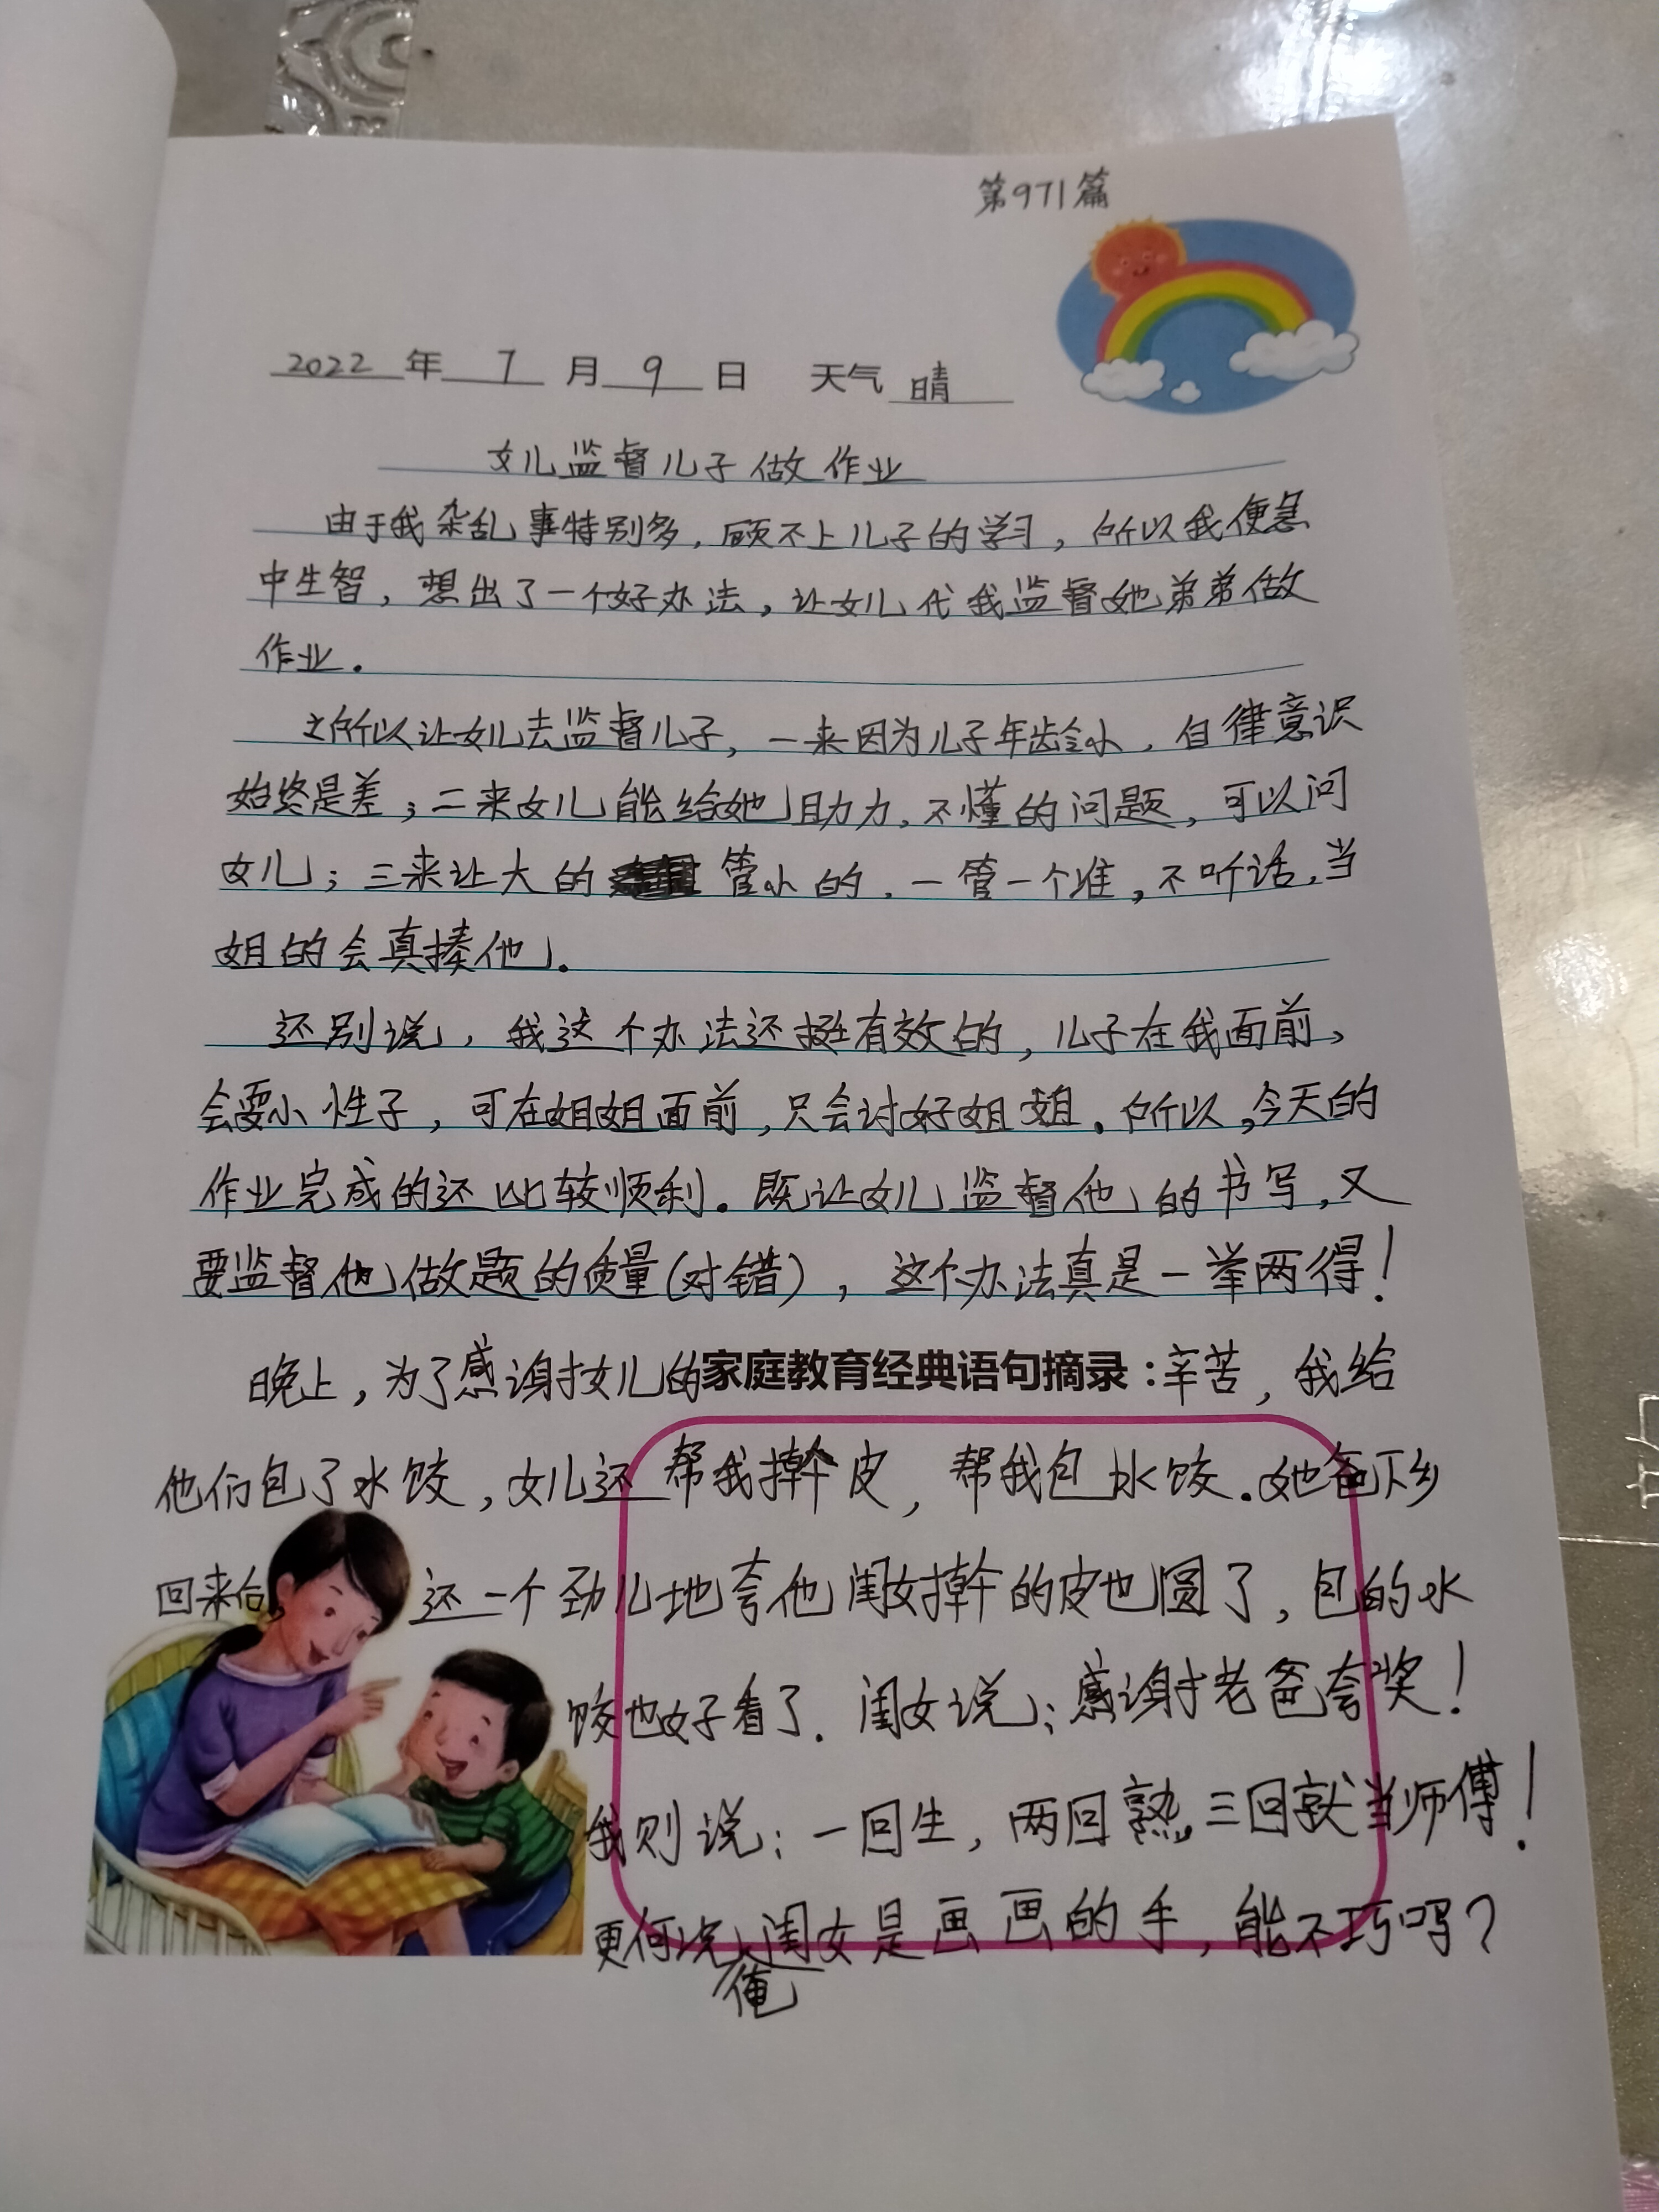 第971篇
2022年7月9日 天气晴
女儿监督儿子做作业
由于我杂乱事特别多，顾不上儿子的学习，所以我便急
中生智，想出了一个好办法，让女儿代我监督她弟弟做
作业.
之所以让女儿去监督儿子，一来因为儿子年龄小，自律意识
始终是差；二来女儿能给她助力，不懂的问题，可以问
女儿；三来让大的管小的，一管一个准，不听话，当
姐的会真揍他.
还别说，我这个办法还挺有效的，儿子在我面前，
会耍小性子，可在姐姐面前，只会讨好姐姐.所以，今天的
作业完成的还比较顺利.既让女儿监督他的书写，又
要监督他做题的质量(对错)，这个办法真是一举两得！
晚上，为了感谢女儿的家庭教育经典语句摘录：辛苦，我给
他们包了水饺，女儿还帮我擀皮，帮我包水饺.她爸下乡
回来后，还一个劲儿地夸他闺女擀的皮也圆了，包的水
饺也好看了.闺女说：感谢老爸夸奖！
我则说：一回生，两回熟，三回就当师傅！
更何况俺闺女是画画的手，能不巧吗？